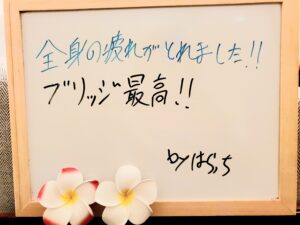 全身の疲れがとれました!!
ブリッジ最高!!
byはらっち